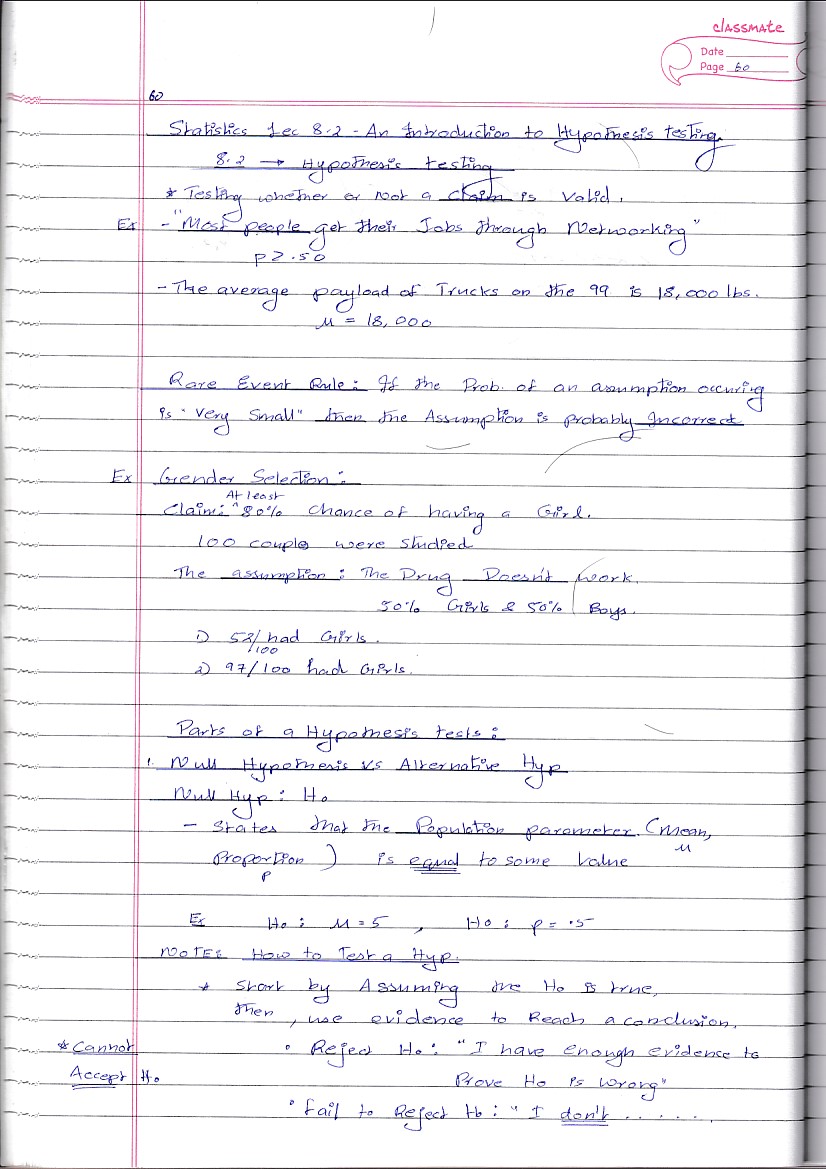 classmate
Date
Page 60
60
Statistics Lec 8.2 - An Introduction to Hypothesis testing.
8.2 → Hypothesis testing
* Testing whether or not a claim is valid.
Ex - "Most people get their Jobs through Networking"
P > .50
- The average payload of Trucks on the 99 is 18,000 lbs.
μ = 18,000
Rare Event Rule: If the Prob. of an assumption occuring
is "Very Small" then the Assumption is probably Incorrect
Ex Gender Selection:
At least
Claim: ^80% Chance of having a Girl.
100 couples were studied
The assumption: The Drug Doesn't work.
50% Girls & 50% Boys.
1) 52/100 had Girls.
2) 97/100 had Girls.
Parts of a Hypothesis tests:
1. Null Hypothesis vs Alternative Hyp
Null Hyp: Ho
- States that the Population parameter (Mean,
μ
Proportion) is equal to some value
P
Ex Ho: μ = 5, Ho: p = .5
NOTE: How to Test a Hyp.
* Start by Assuming the Ho is true,
then, use evidence to Reach a conclusion.
* Cannot
Accept Ho
• Reject Ho: "I have enough evidence to
Prove Ho is wrong"
• Fail to Reject Ho: "I don't . . . . . .